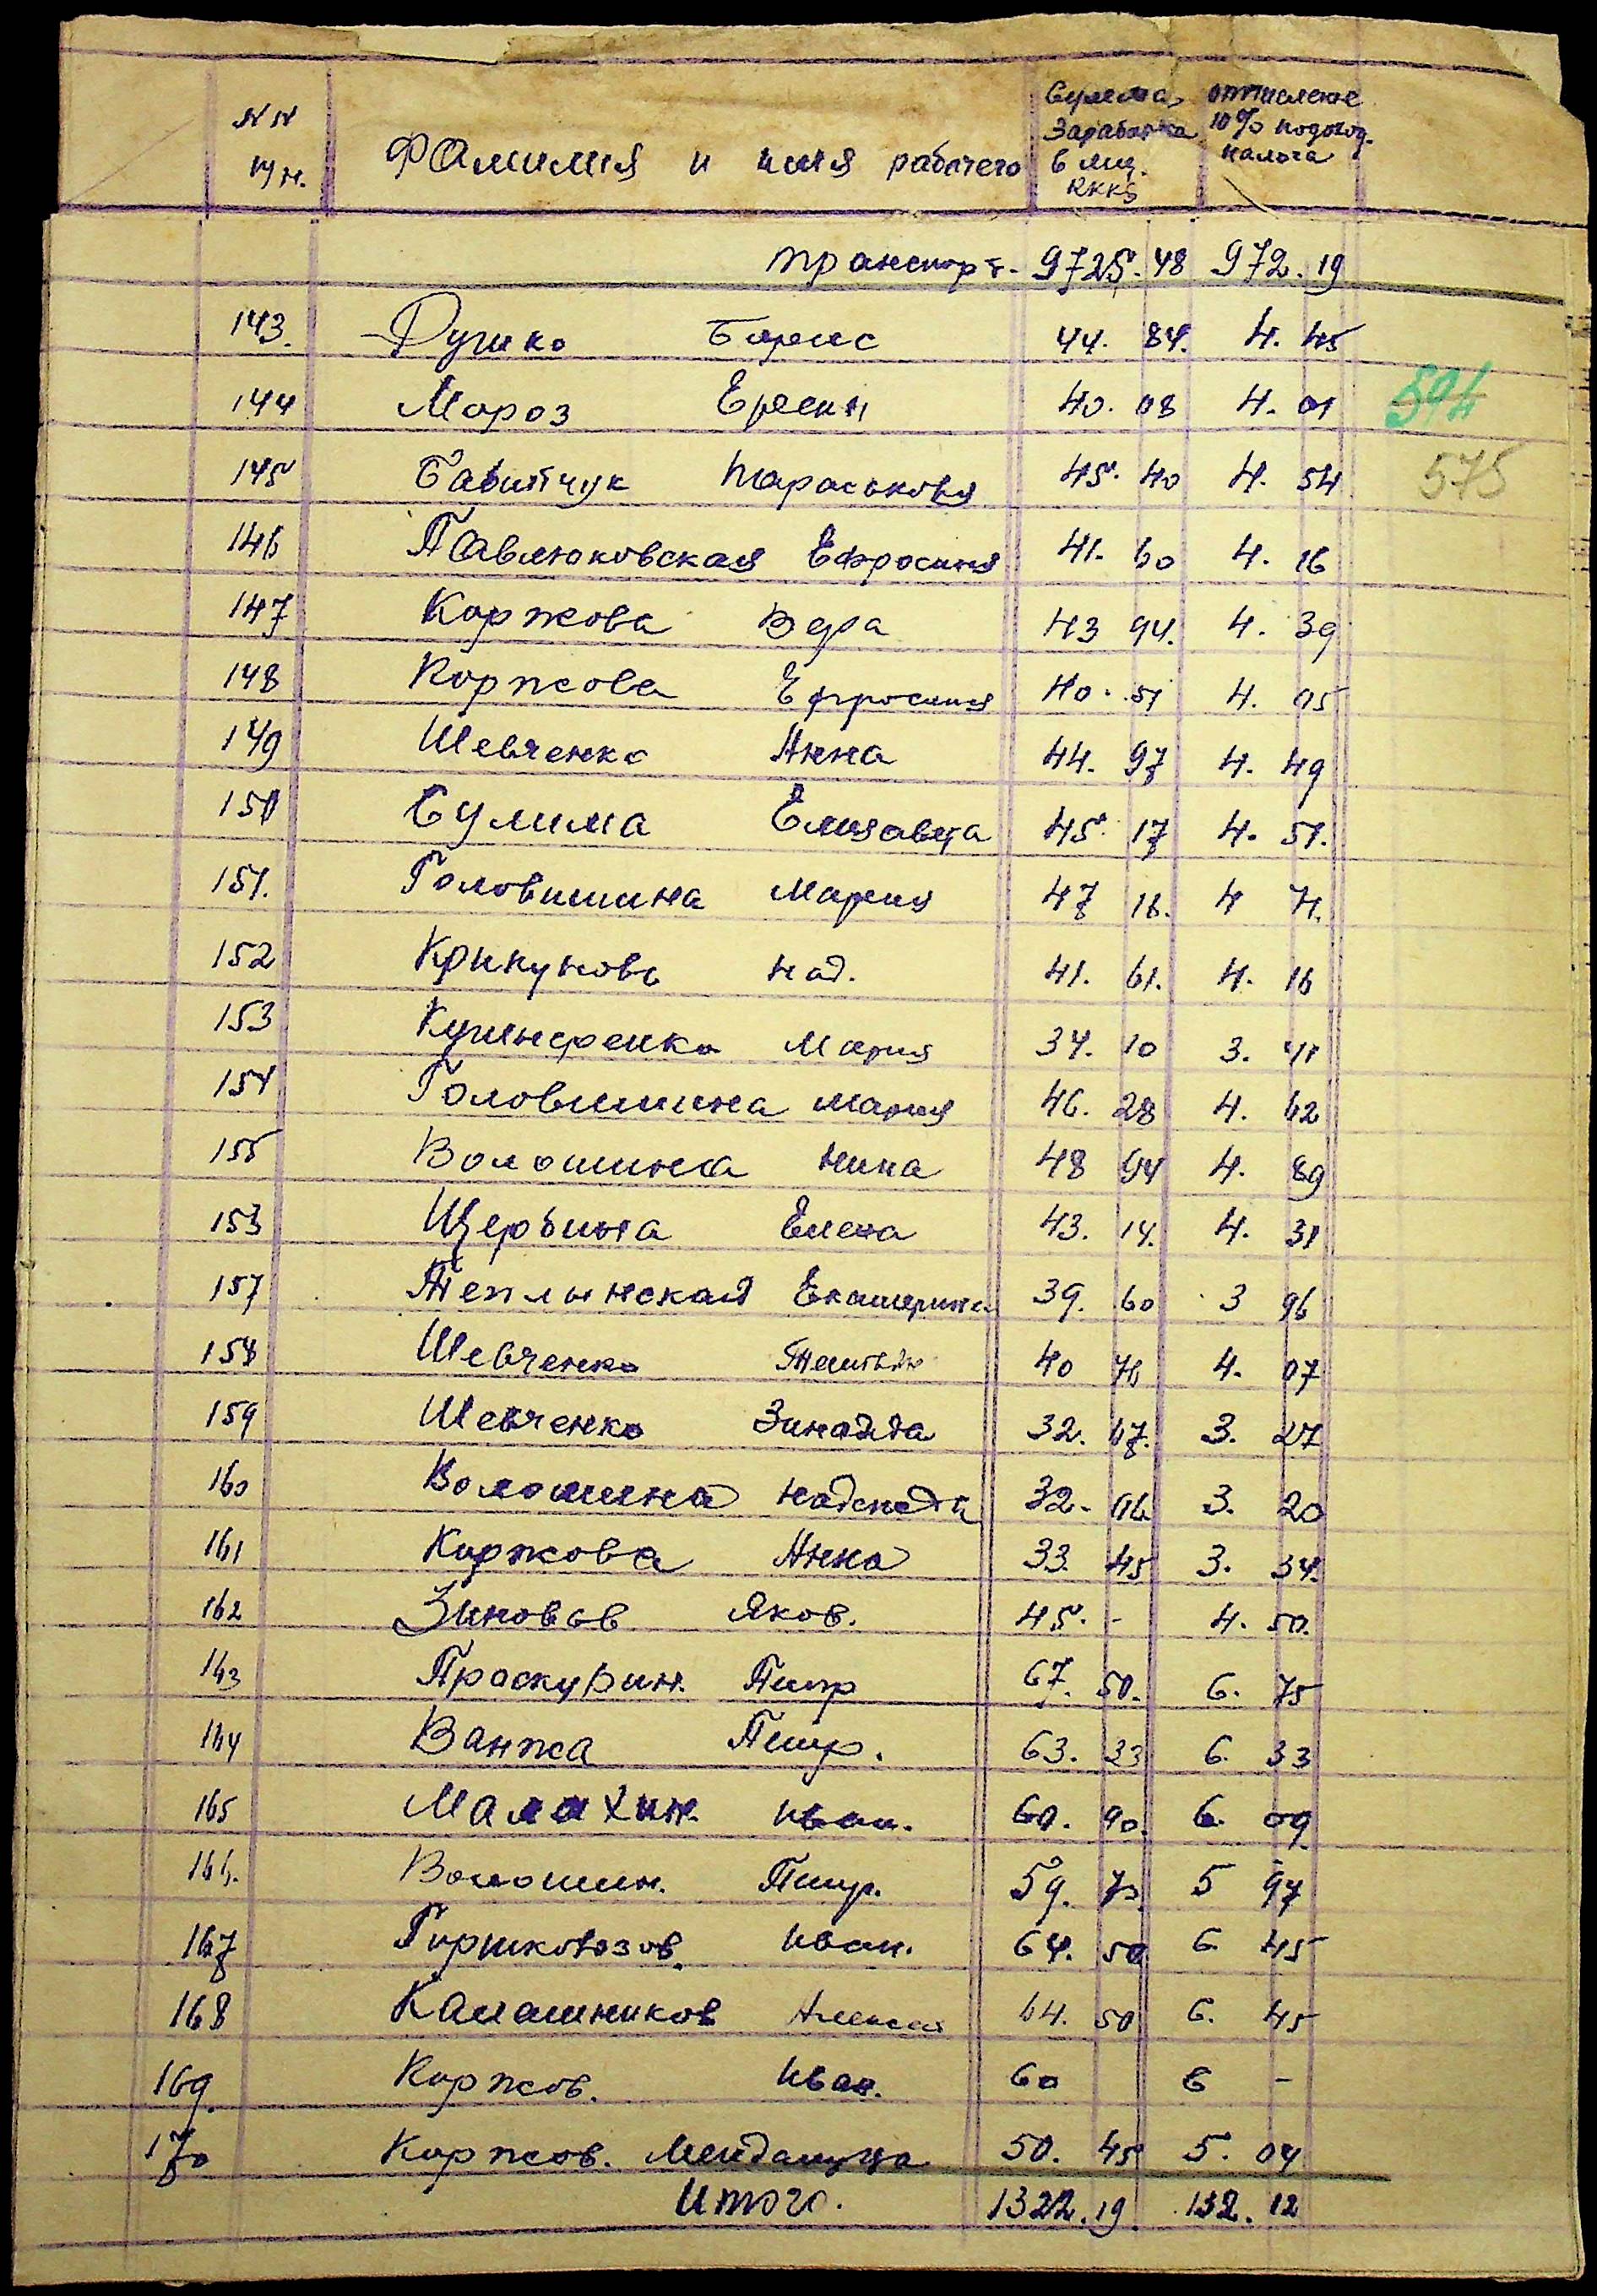 NN
п/н.
Фамилия и имя рабочего
Сумма заработка в мц. RKKS
отчисление 10% подоход. налога
транспорт. 9725. 48 972. 19
143. Душко Борис 44. 84. 4. 45
144 Мороз Ермин 40. 08 4. 01
594
145 Бабийчук Парасковия 45. 40 4. 54
575
146 Павлюковская Ефросиня 41. 60 4. 16
147 Коржова Вера 43 94. 4. 39
148 Коржова Ефросиния 40. 51 4. 05
149 Шевченко Анна 44. 97 4. 49
150 Сулима Елизавета 45. 17 4. 51.
151. Головинина Мария 47 16. 4 71.
152 Крикунова Над. 41. 61. 4. 16
153 Кушнеренко Мария 34. 10 3. 41
154 Головинина Мария 46. 28 4. 62
155 Волошина Нина 48 94 4. 89
153 Щербина Елена 43. 14. 4. 31
157 Теплынская Екатерина 39. 60 3 96
158 Шевченко 40 71 4. 07
159 Шевченко Зинаида 32. 67. 3. 27
160 Волошина Надежда 32. 06 3. 20
161 Коржова Анна 33. 45 3. 34.
162 Зиновьв Яков. 45. - 4. 50.
163 Праскурин. Питр 67. 50. 6. 75
164 Ванжа Питр. 63. 33 6. 33
165 Малахин. Иван. 60. 90. 6. 09
166. Волошин. Питр. 59. 70. 5 97
167 Горшковозов. Иван. 64. 50 6 45
168 Калашников Алексей 64. 50 6. 45
169. Коржов. Иван. 60 6 -
170 Коржов. 50. 45 5. 04
Итого. 1322. 19 132. 12